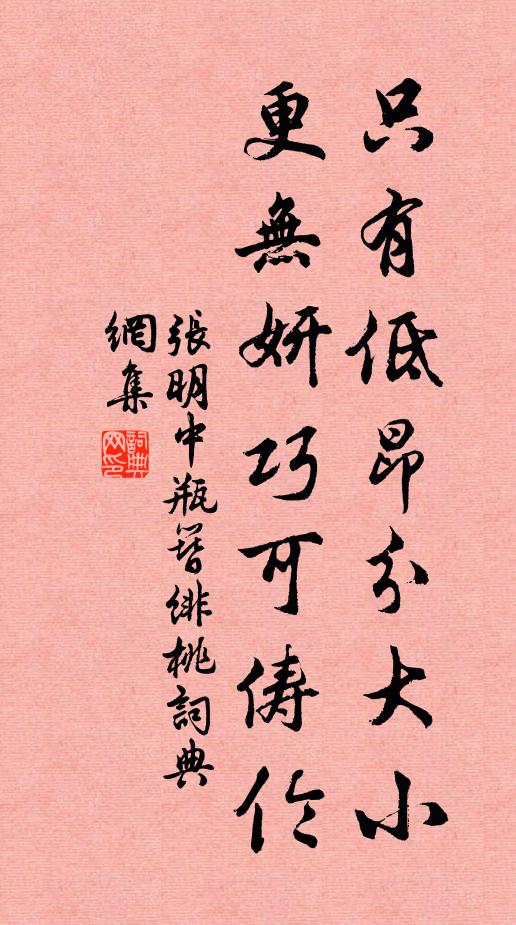 只有低昂分大小
更無妍巧可儔伦
張明中瓶簪緋桃詞典
網集
詞典
网印